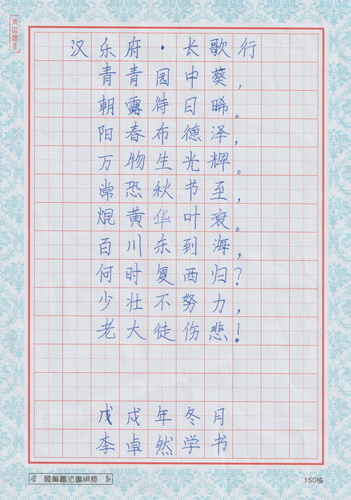 汉乐府·长歌行
青青园中葵,
朝露待日晞。
阳春布德泽,
万物生光辉。
常恐秋节至,
焜黄华叶衰。
百川东到海,
何时复西归?
少壮不努力,
老大徒伤悲!
戊戌年冬月
李卓然学书
150格